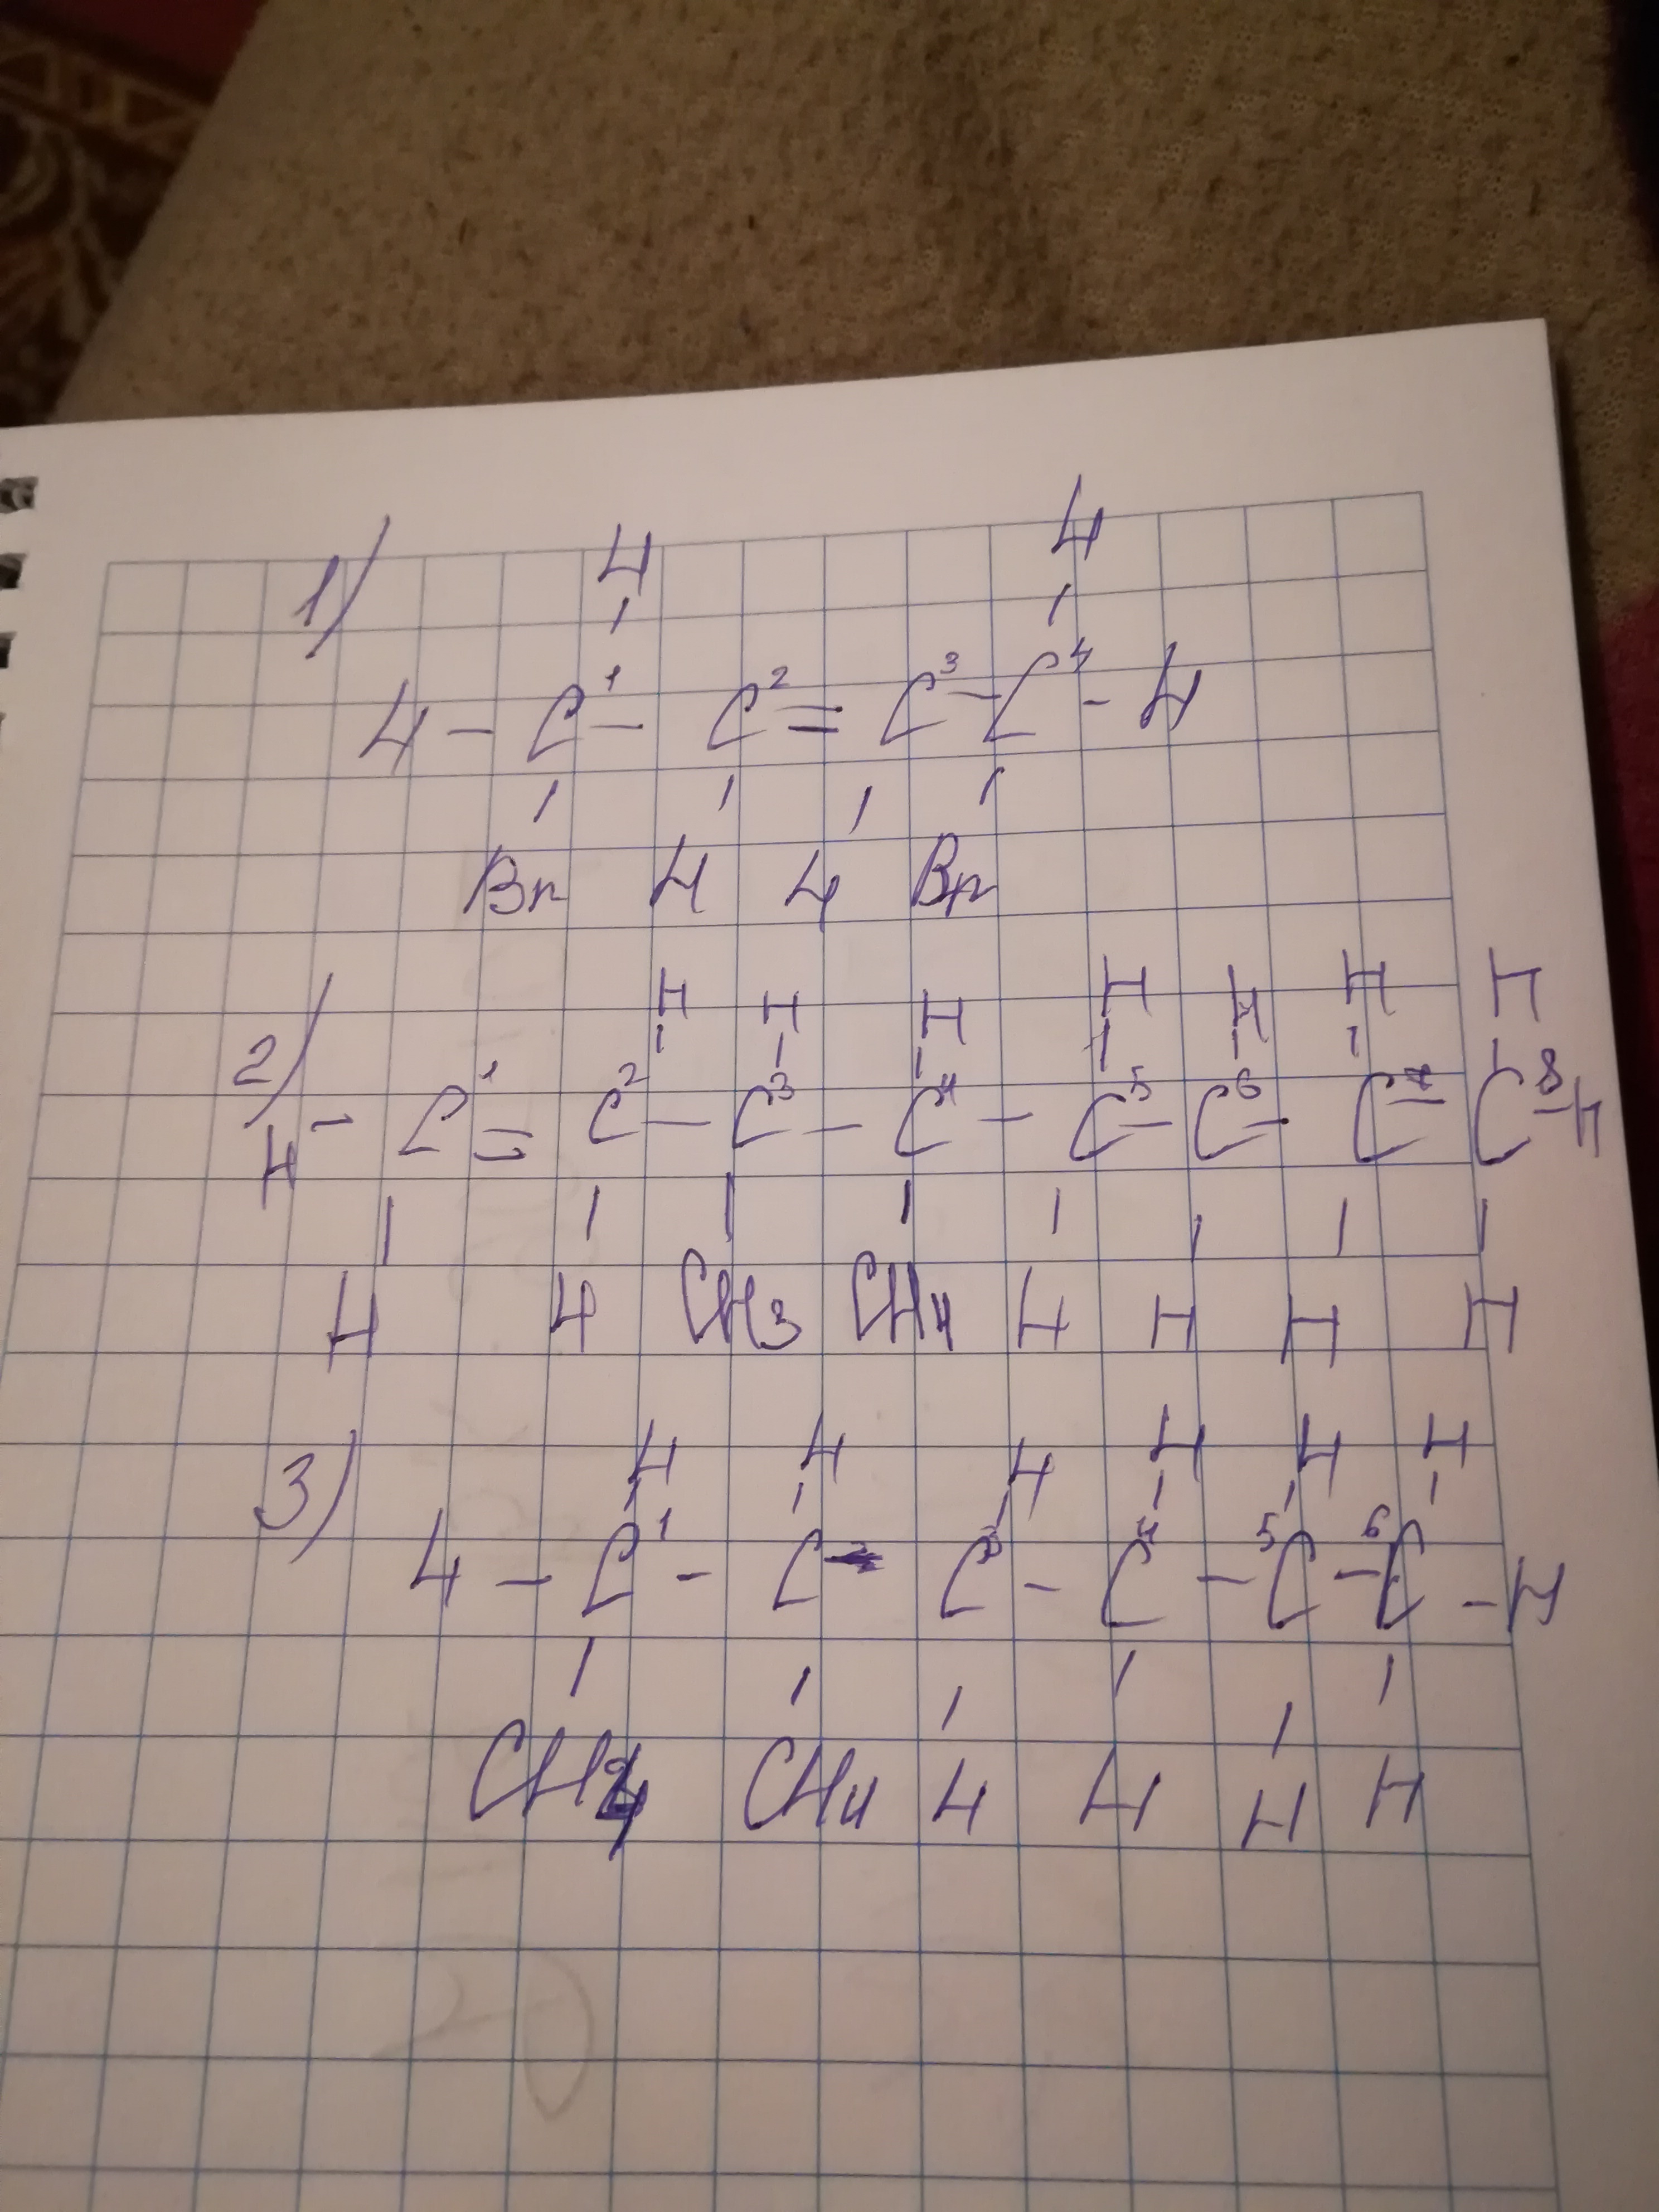 1)
H H
H - C¹ - C² = C³ - C⁴ - H
Br H H Br
2)
H H H H H H H
H - C¹ = C² - C³ - C⁴ - C⁵ - C⁶ - C⁷ = C⁸ - H
H H CH3 CH4 H H H H
3)
H H H H H H
H - C¹ - C - C³ - C⁴ - C⁵ - C⁶ - H
CH4 CH4 H H H H